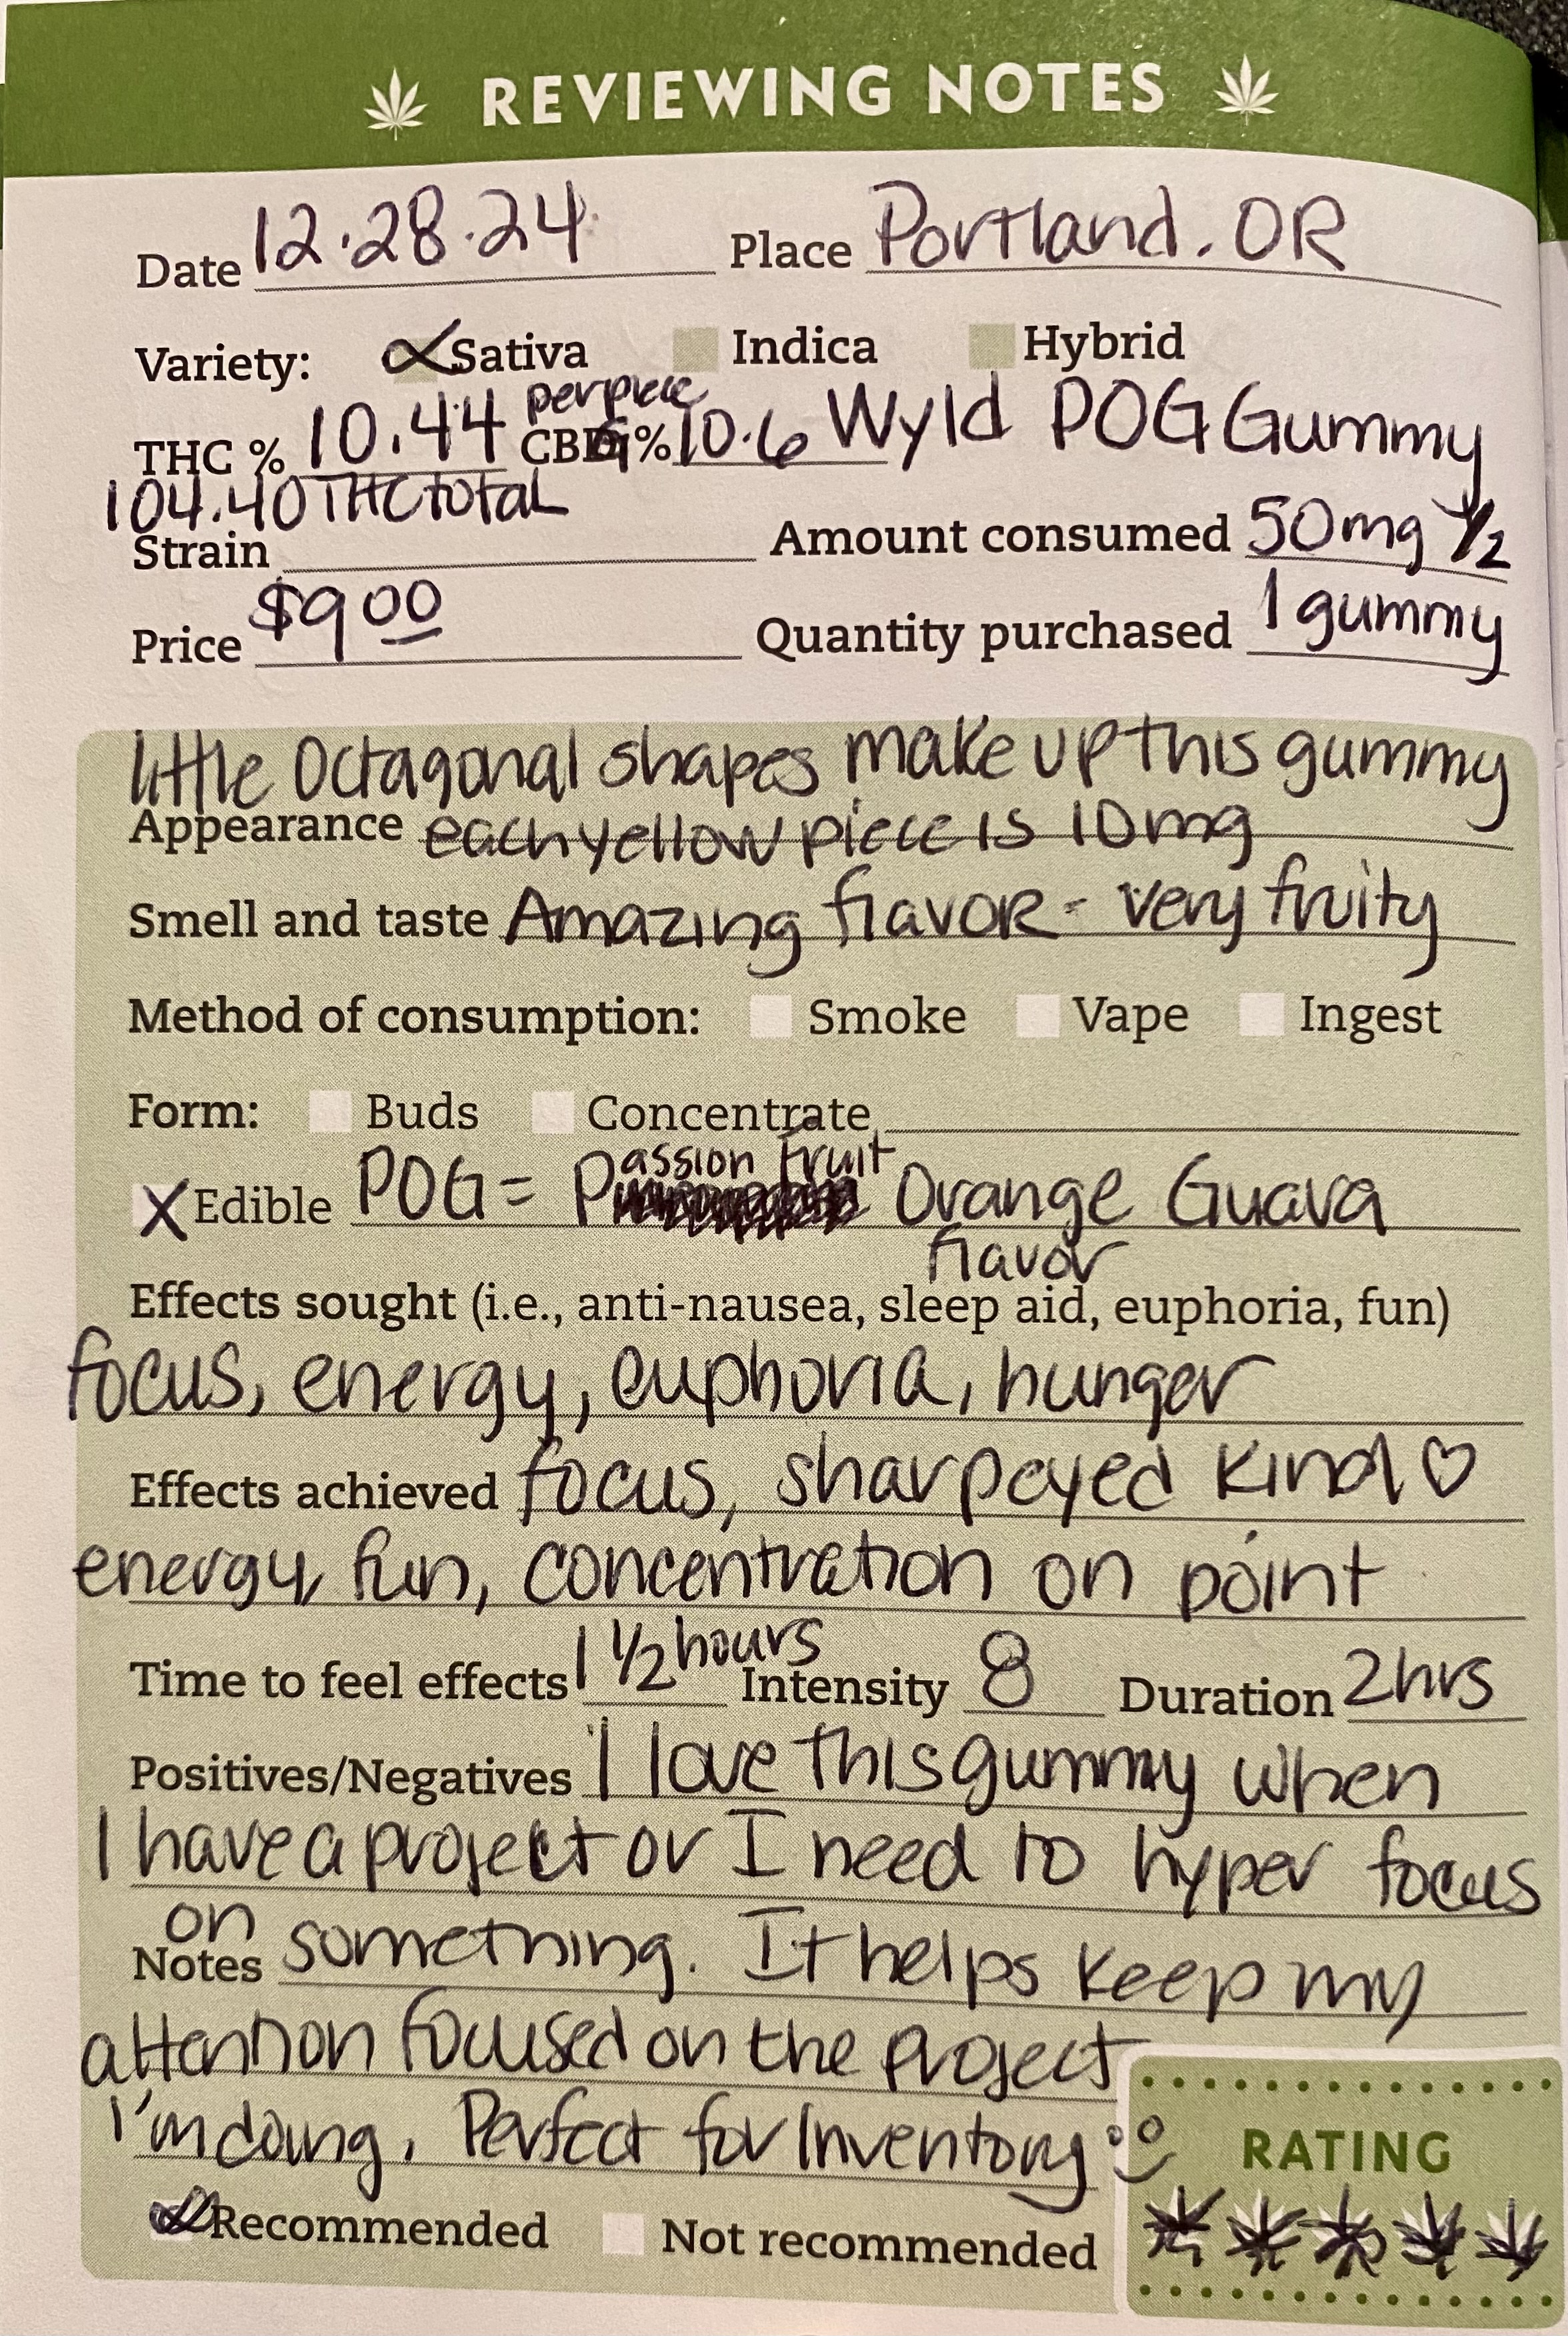 REVIEWING NOTES
Date 12.28.24 Place Portland, OR
Variety: Sativa Indica Hybrid
per piece
THC % 10.44 CBG % 10.6 Wyld POG Gummy
104.40 THC total
Strain Amount consumed 50mg 1/2
Price $9 00 Quantity purchased 1 gummy
little Octagonal shapes make up this gummy
Appearance each yellow piece is 10mg
Smell and taste Amazing flavor - very fruity
Method of consumption: Smoke Vape Ingest
Form: Buds Concentrate
X Edible POG = Passion Fruit Orange Guava
flavor
Effects sought (i.e., anti-nausea, sleep aid, euphoria, fun)
focus, energy, euphoria, hunger
Effects achieved focus, sharp eyed kind ♡
energy, fun, concentration on point
Time to feel effects 1 1/2 hours Intensity 8 Duration 2hrs
Positives/Negatives I love this gummy when
I have a project or I need to hyper focus
on
Notes something. It helps keep my
attention focused on the project
I'm doing. Perfect for Inventory
RATING
Recommended Not recommended